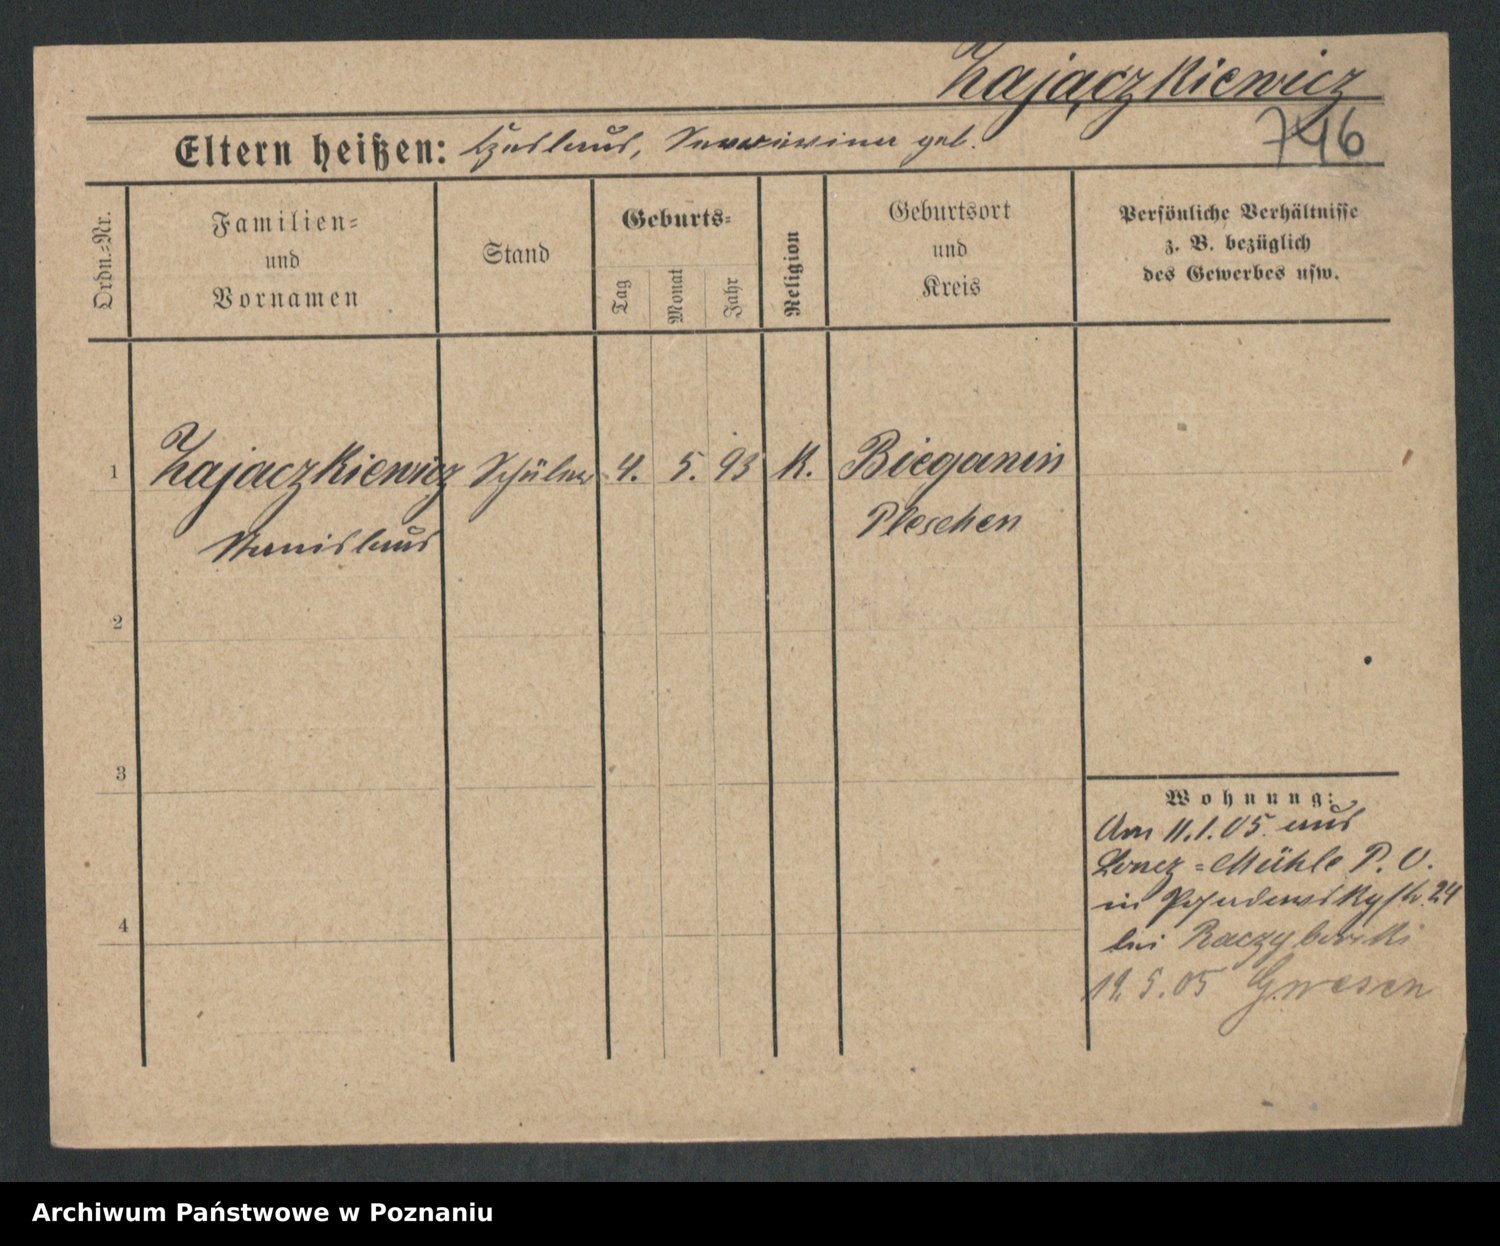 Zajączkiewicz
746
Eltern heißen: Czeslaus, Severina geb.
Ordn.-Nr.
Familien-
und
Vornamen
Stand
Geburts-
Tag
Monat
Jahr
Religion
Geburtsort
und
Kreis
Persönliche Verhältnisse
z. B. bezüglich
des Gewerbes usw.
1 Zajaczkiewicz Schüler 4. 5. 93 K. Bieganin
Stanislaus Pleschen
2
3
4
Wohnung:
Am 11.1.05. aus
Mühle P. O.
in 24
bei
12.5.05 Gnesen
Archiwum Państwowe w Poznaniu